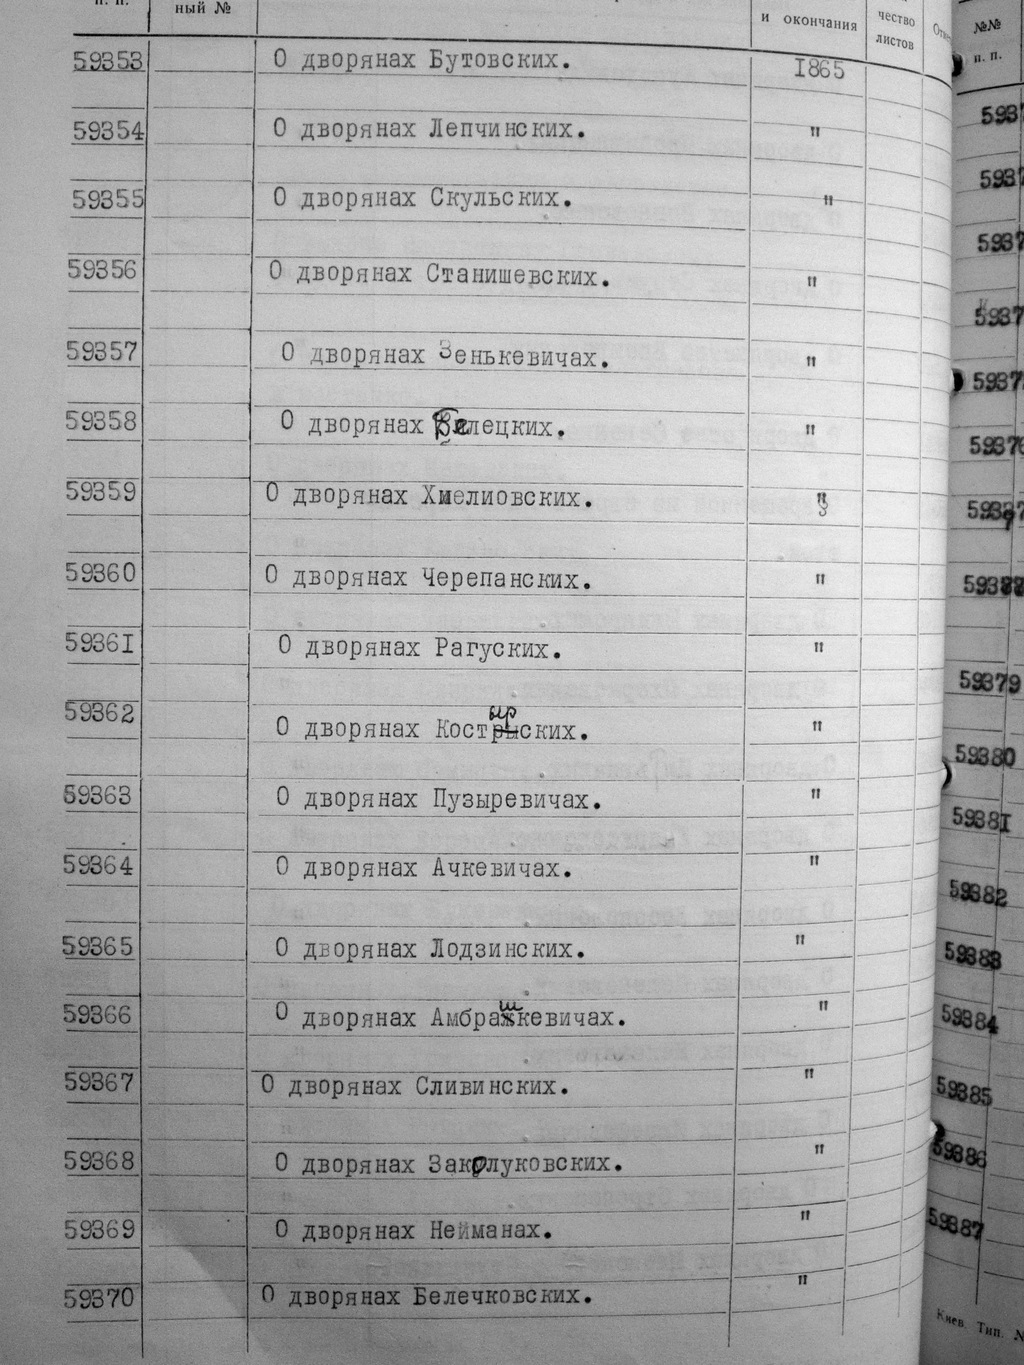 п. п. ный № и окончания чество листов
59353 О дворянах Бутовских. 1865
59354 О дворянах Лепчинских. "
59355 О дворянах Скульских. "
59356 О дворянах Станишевских. "
59357 О дворянах Зенькевичах. "
59358 О дворянах Белецких. "
59359 О дворянах Хмелиовских. "
59360 О дворянах Черепанских. "
59361 О дворянах Рагуских. "
59362 О дворянах Костырских. "
59363 О дворянах Пузыревичах. "
59364 О дворянах Ачкевичах. "
59365 О дворянах Лодзинских. "
59366 О дворянах Амбрашкевичах. "
59367 О дворянах Сливинских. "
59368 О дворянах Заколуковских. "
59369 О дворянах Нейманах. "
59370 О дворянах Белечковских. "
№№
п. п.
59379
59380
59381
59382
59383
59384
59385
59386
59387
Киев Тип.